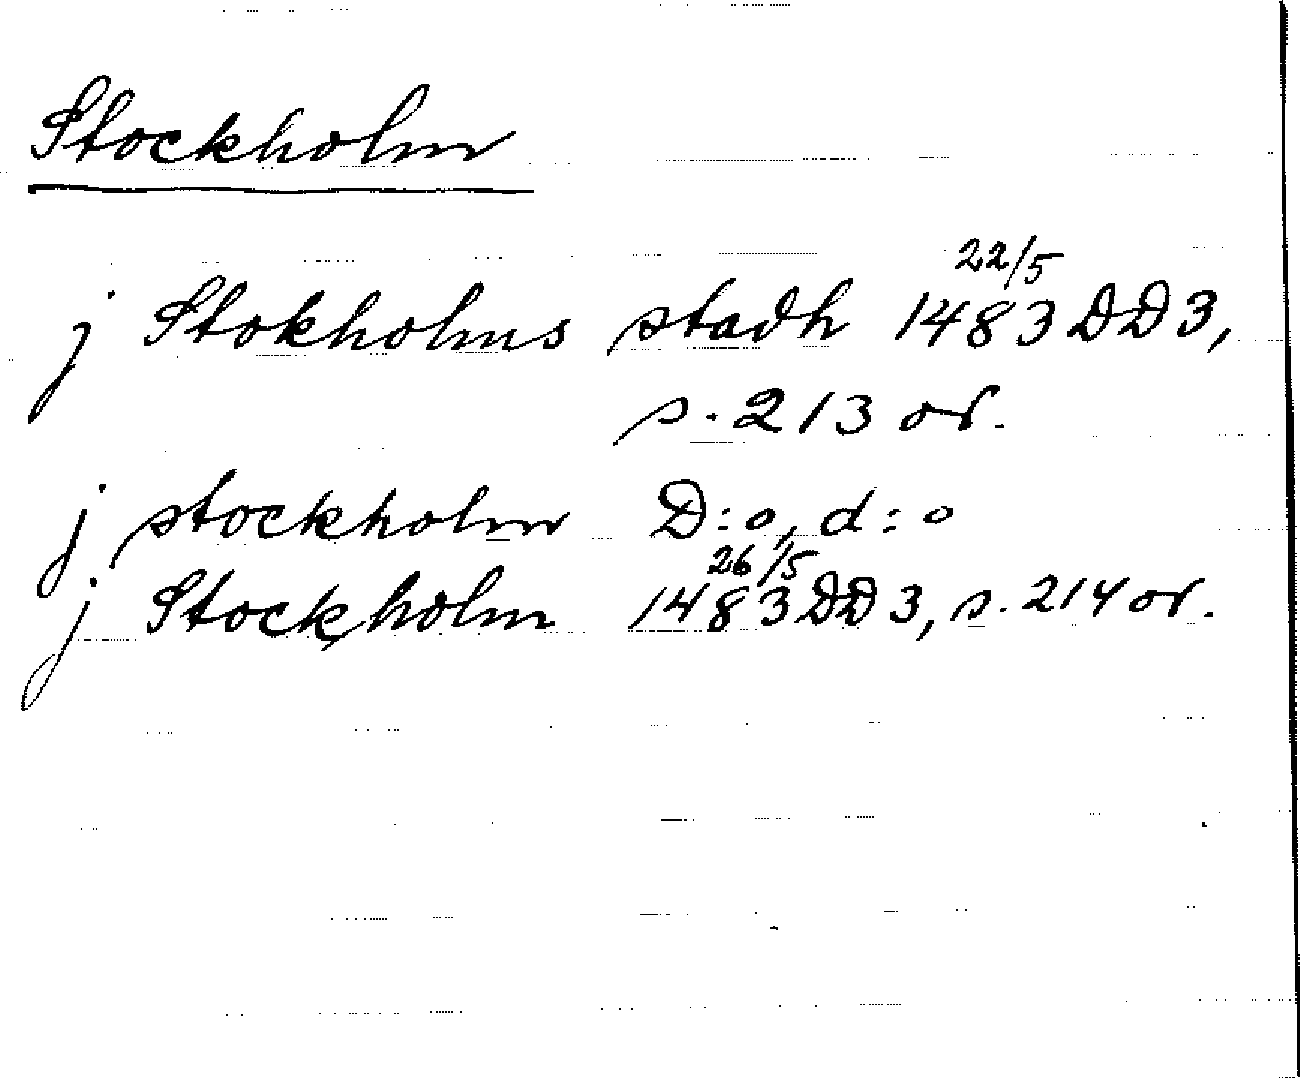 Stockholm
j Stokholms stadh 22/5 1483 DD 3,
s. 213 or.
j stockholm D:o, d:o
j Stockholm 26/5 1483 DD 3, s. 214 or.